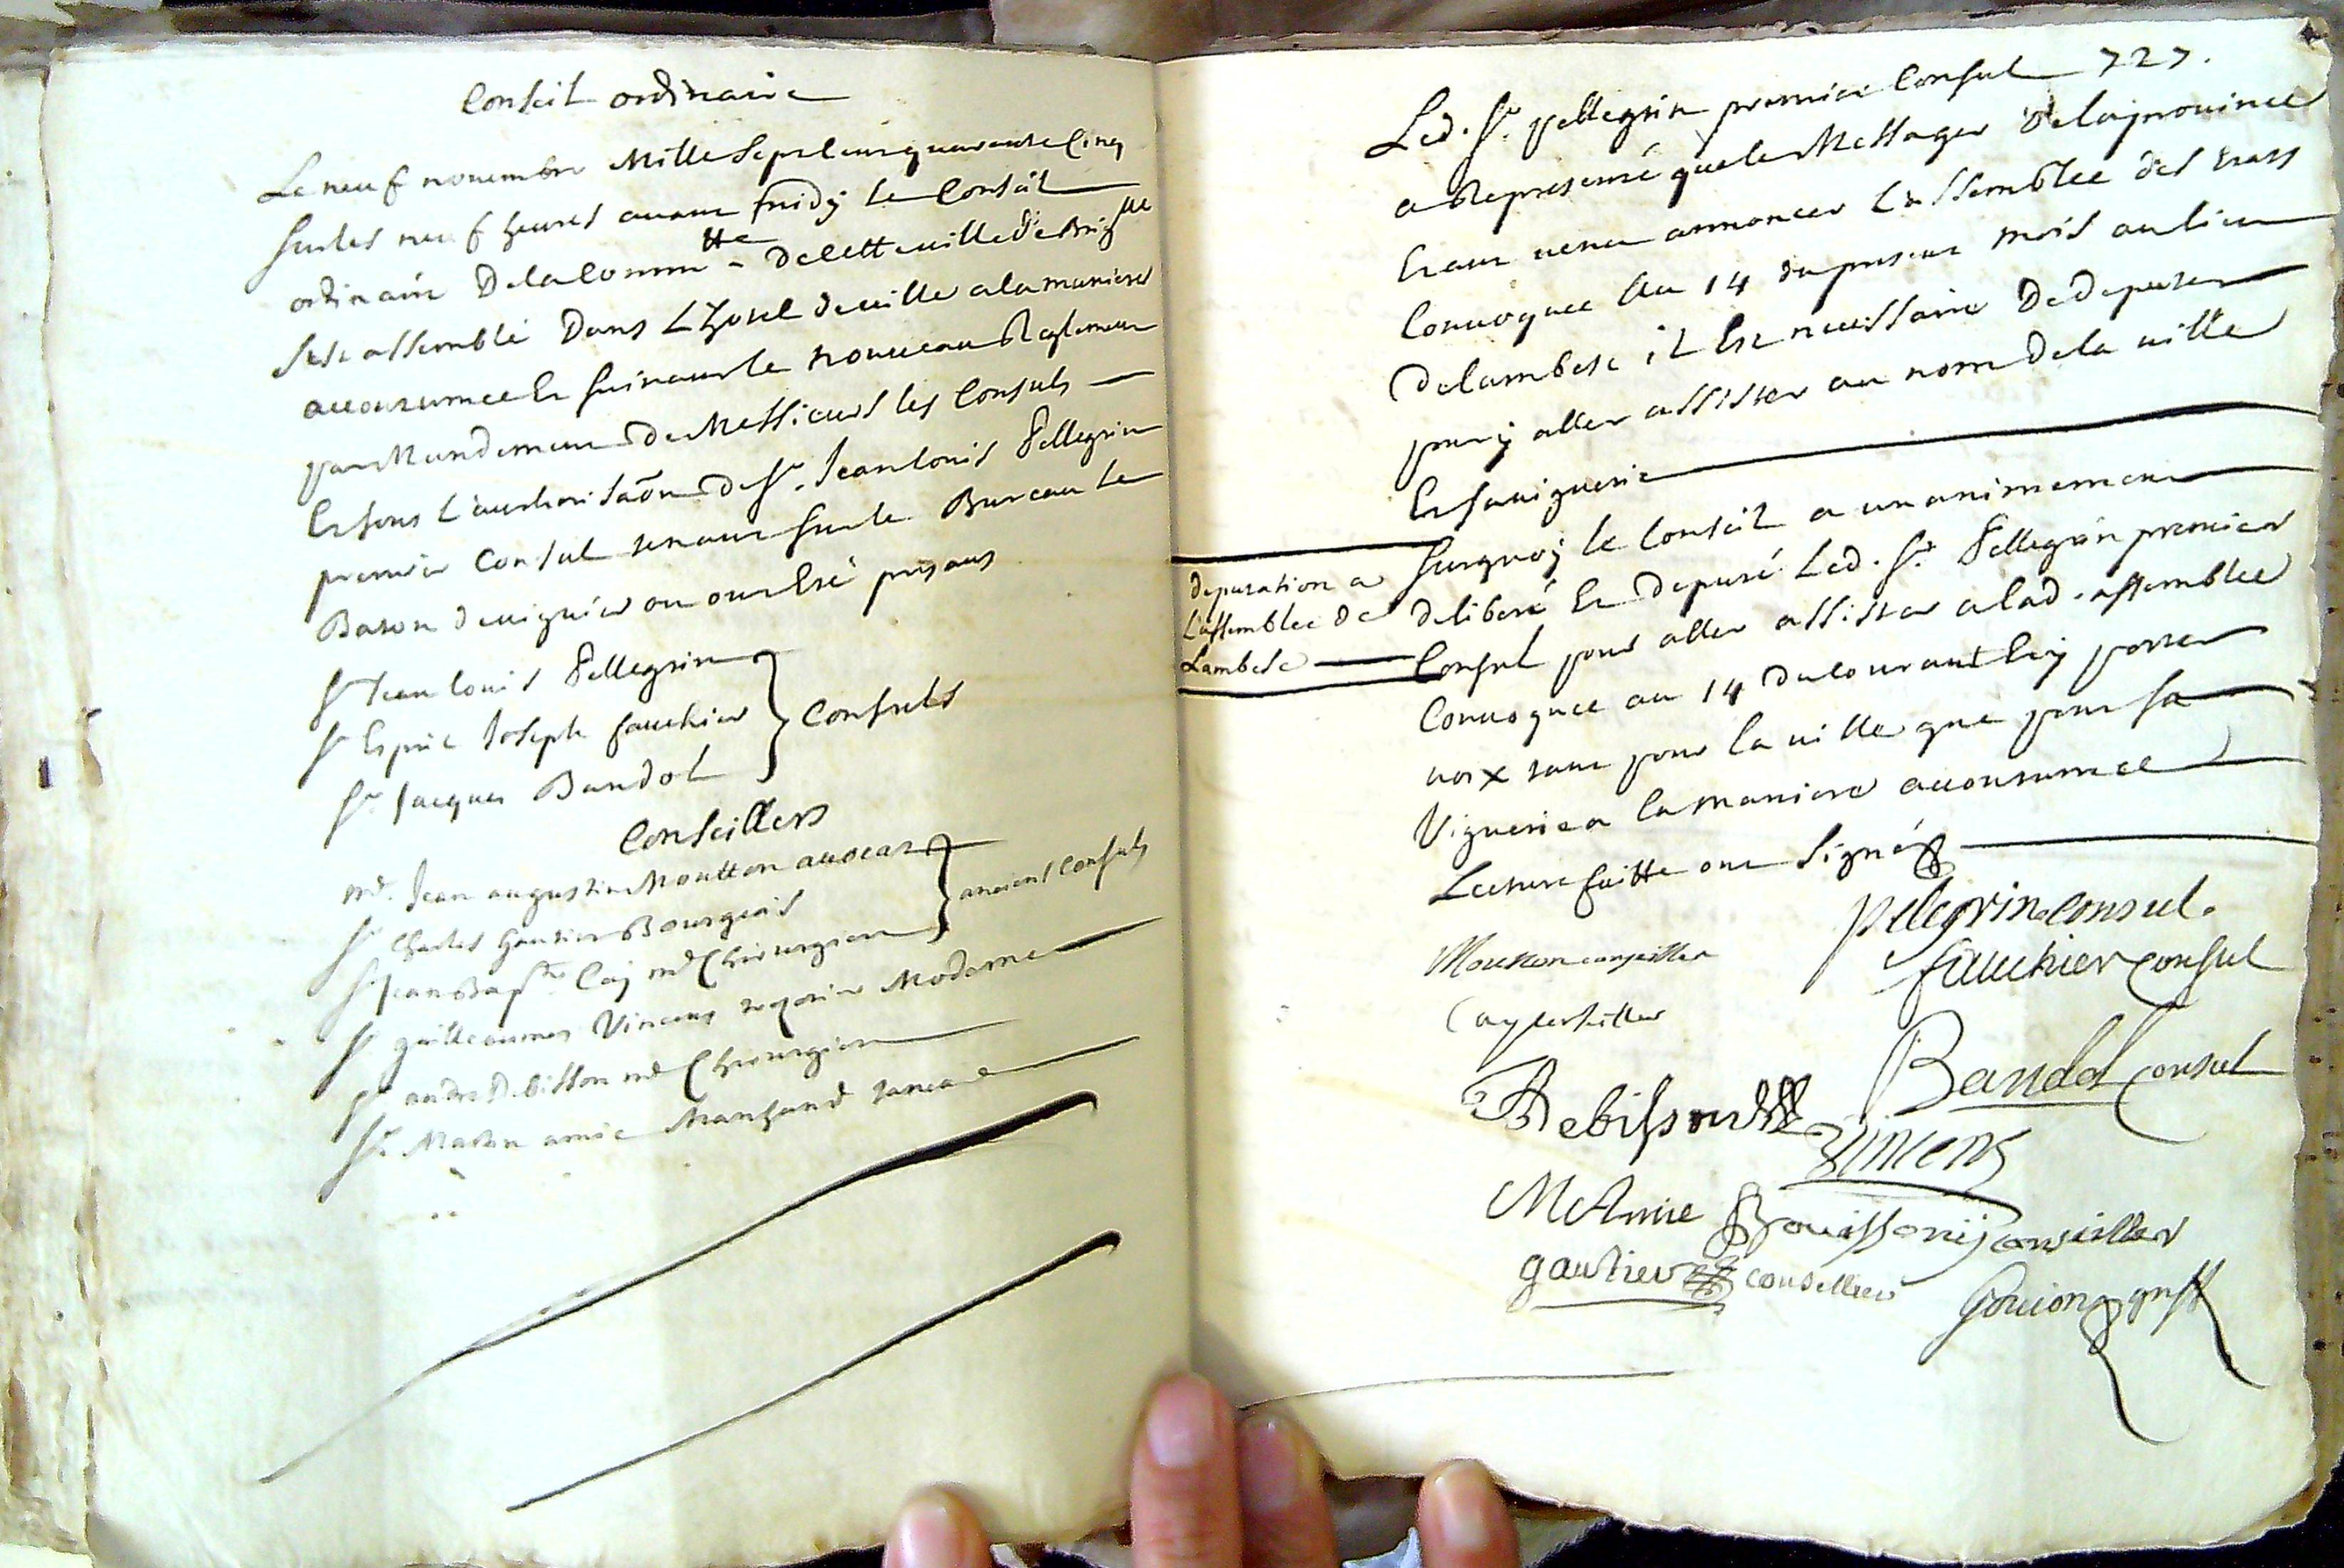 Conseil ordinaire
Le neuf novembre Mille Sept Cens quarante Cinq
sur les neuf heures avant midy le Conseil
ordinaire De la Commtte De cette ville de Brigllе
s'est assemblé Dans L'hotel de ville a la maniere
accoutumee Et suivant le nouveau Reglement
par Mandement De Messieurs les Consuls
Et sous L'authorisaõn De Sr. Jean louis Pellegrin
premier Consul tenant sur le Bureau le
Baton de viguier ou ont Eté presans
Sr Jean louis Pellegrin
Sr Esprit Joseph fauchier } Consuls
Sr. Jacques Bandol
Conseillers
Me. Jean augustin Moutton avocat
Sr Charles Gautier Bourgeois } anciens Consuls
Sr Jean Bapte. Caÿ me Chirurgien
Sr guilleaumes Vincens Moderne
Sr andre Rebisson me Chirurgien
Sr. Martin amic Marchand taneur
727.
Led. Sr. pellegrin premier Consul
a Representé que le Messager De la province
Etant venu annoncer L'assemblée des Etats
Convoquee Au 14 du present mois au lieu
De lambesc il Est necessaire De deputer
pour y aller assister au nom De la ville
Et sa viguerie
deputation a
L'assemblee de
Lambesc
Surquoy le Conseil a unanimement
deliberé Et Deputé Led. Sr. Pellegrin premier
Consul pour aller assister a lad. assemblée
Convoquee au 14 du Courant Et y porter
voix tant pour la ville que pour sa
Viguerie a la maniere accoutumee
Lecture faitte ont Signés
pelegrin consul.
Moutton conseiller
fauchier Consul
Cay conseiller
Bandol Consul
Rebisson
Vincens
M Amic
Bouissony conseiller
gautier conseiller
Goujon greff